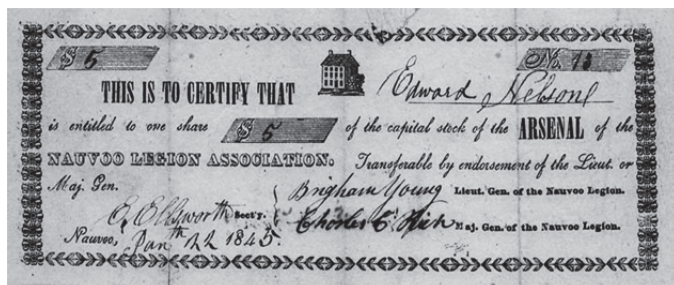 $ 5 No. 13
THIS IS TO CERTIFY THAT Edward Nelson
is entitled to one share $ 5 of the capital stock of the ARSENAL of the
NAUVOO LEGION ASSOCIATION. Transferable by endorsement of the Lieut. or
Maj. Gen. Brigham Young Lieut. Gen. of the Nauvoo Legion.
E. Ellsworth Sect'y. Charles C. Rich Maj. Gen. of the Nauvoo Legion.
Nauvoo, Jan 22 1845